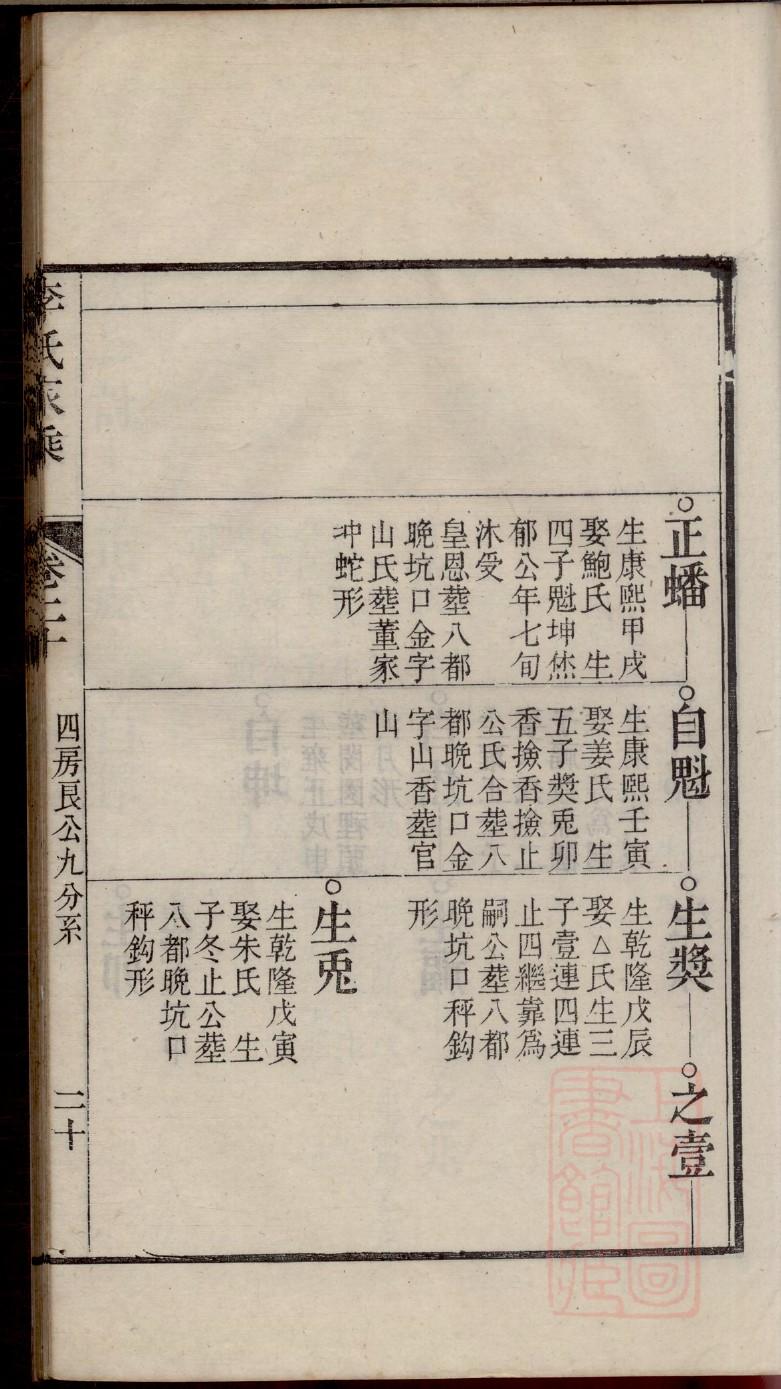 正蟠
生康熙甲戌
娶鮑氏 生
四子魁坤烋
郁公年七旬
沐受
皇恩塟八都
晚坑口金字
山氏塟董家
坤蛇形
自魁
生康熙壬寅
娶姜氏 生
五子奬兎卯
香撿香撿止
公氏合塟八
都晚坑口金
字山香塟官
山
生奬
生乾隆戊辰
娶△氏生三
子壹連四連
止四繼靠爲
嗣公塟八都
晚坑口秤鈎
形
生兎
生乾隆戊寅
娶朱氏 生
子冬止公塟
八都晚坑口
秤鈎形
之壹
李氏家乘
卷二十
四房艮公九分系
二十
上海圖
書館藏